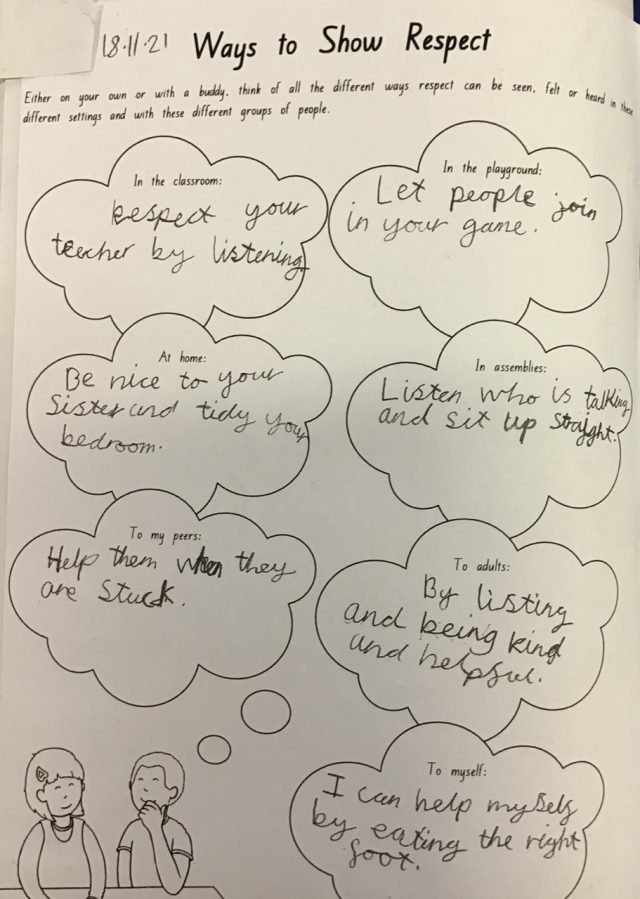 18.11.21 Ways to Show Respect
Either on your own or with a buddy, think of all the different ways respect can be seen, felt or heard in these
different settings and with these different groups of people.
In the classroom:
Respect your
teecher by listening
In the playground:
Let people join
in your game.
At home:
Be nice to your
Sister and tidy your
bedroom.
In assemblies:
Listen who is talking
and sit up straight.
To my peers:
Help them when they
are stuck.
To adults:
By listing
and being kind
and helpful.
To myself:
I can help myself
by eating the right
foot.